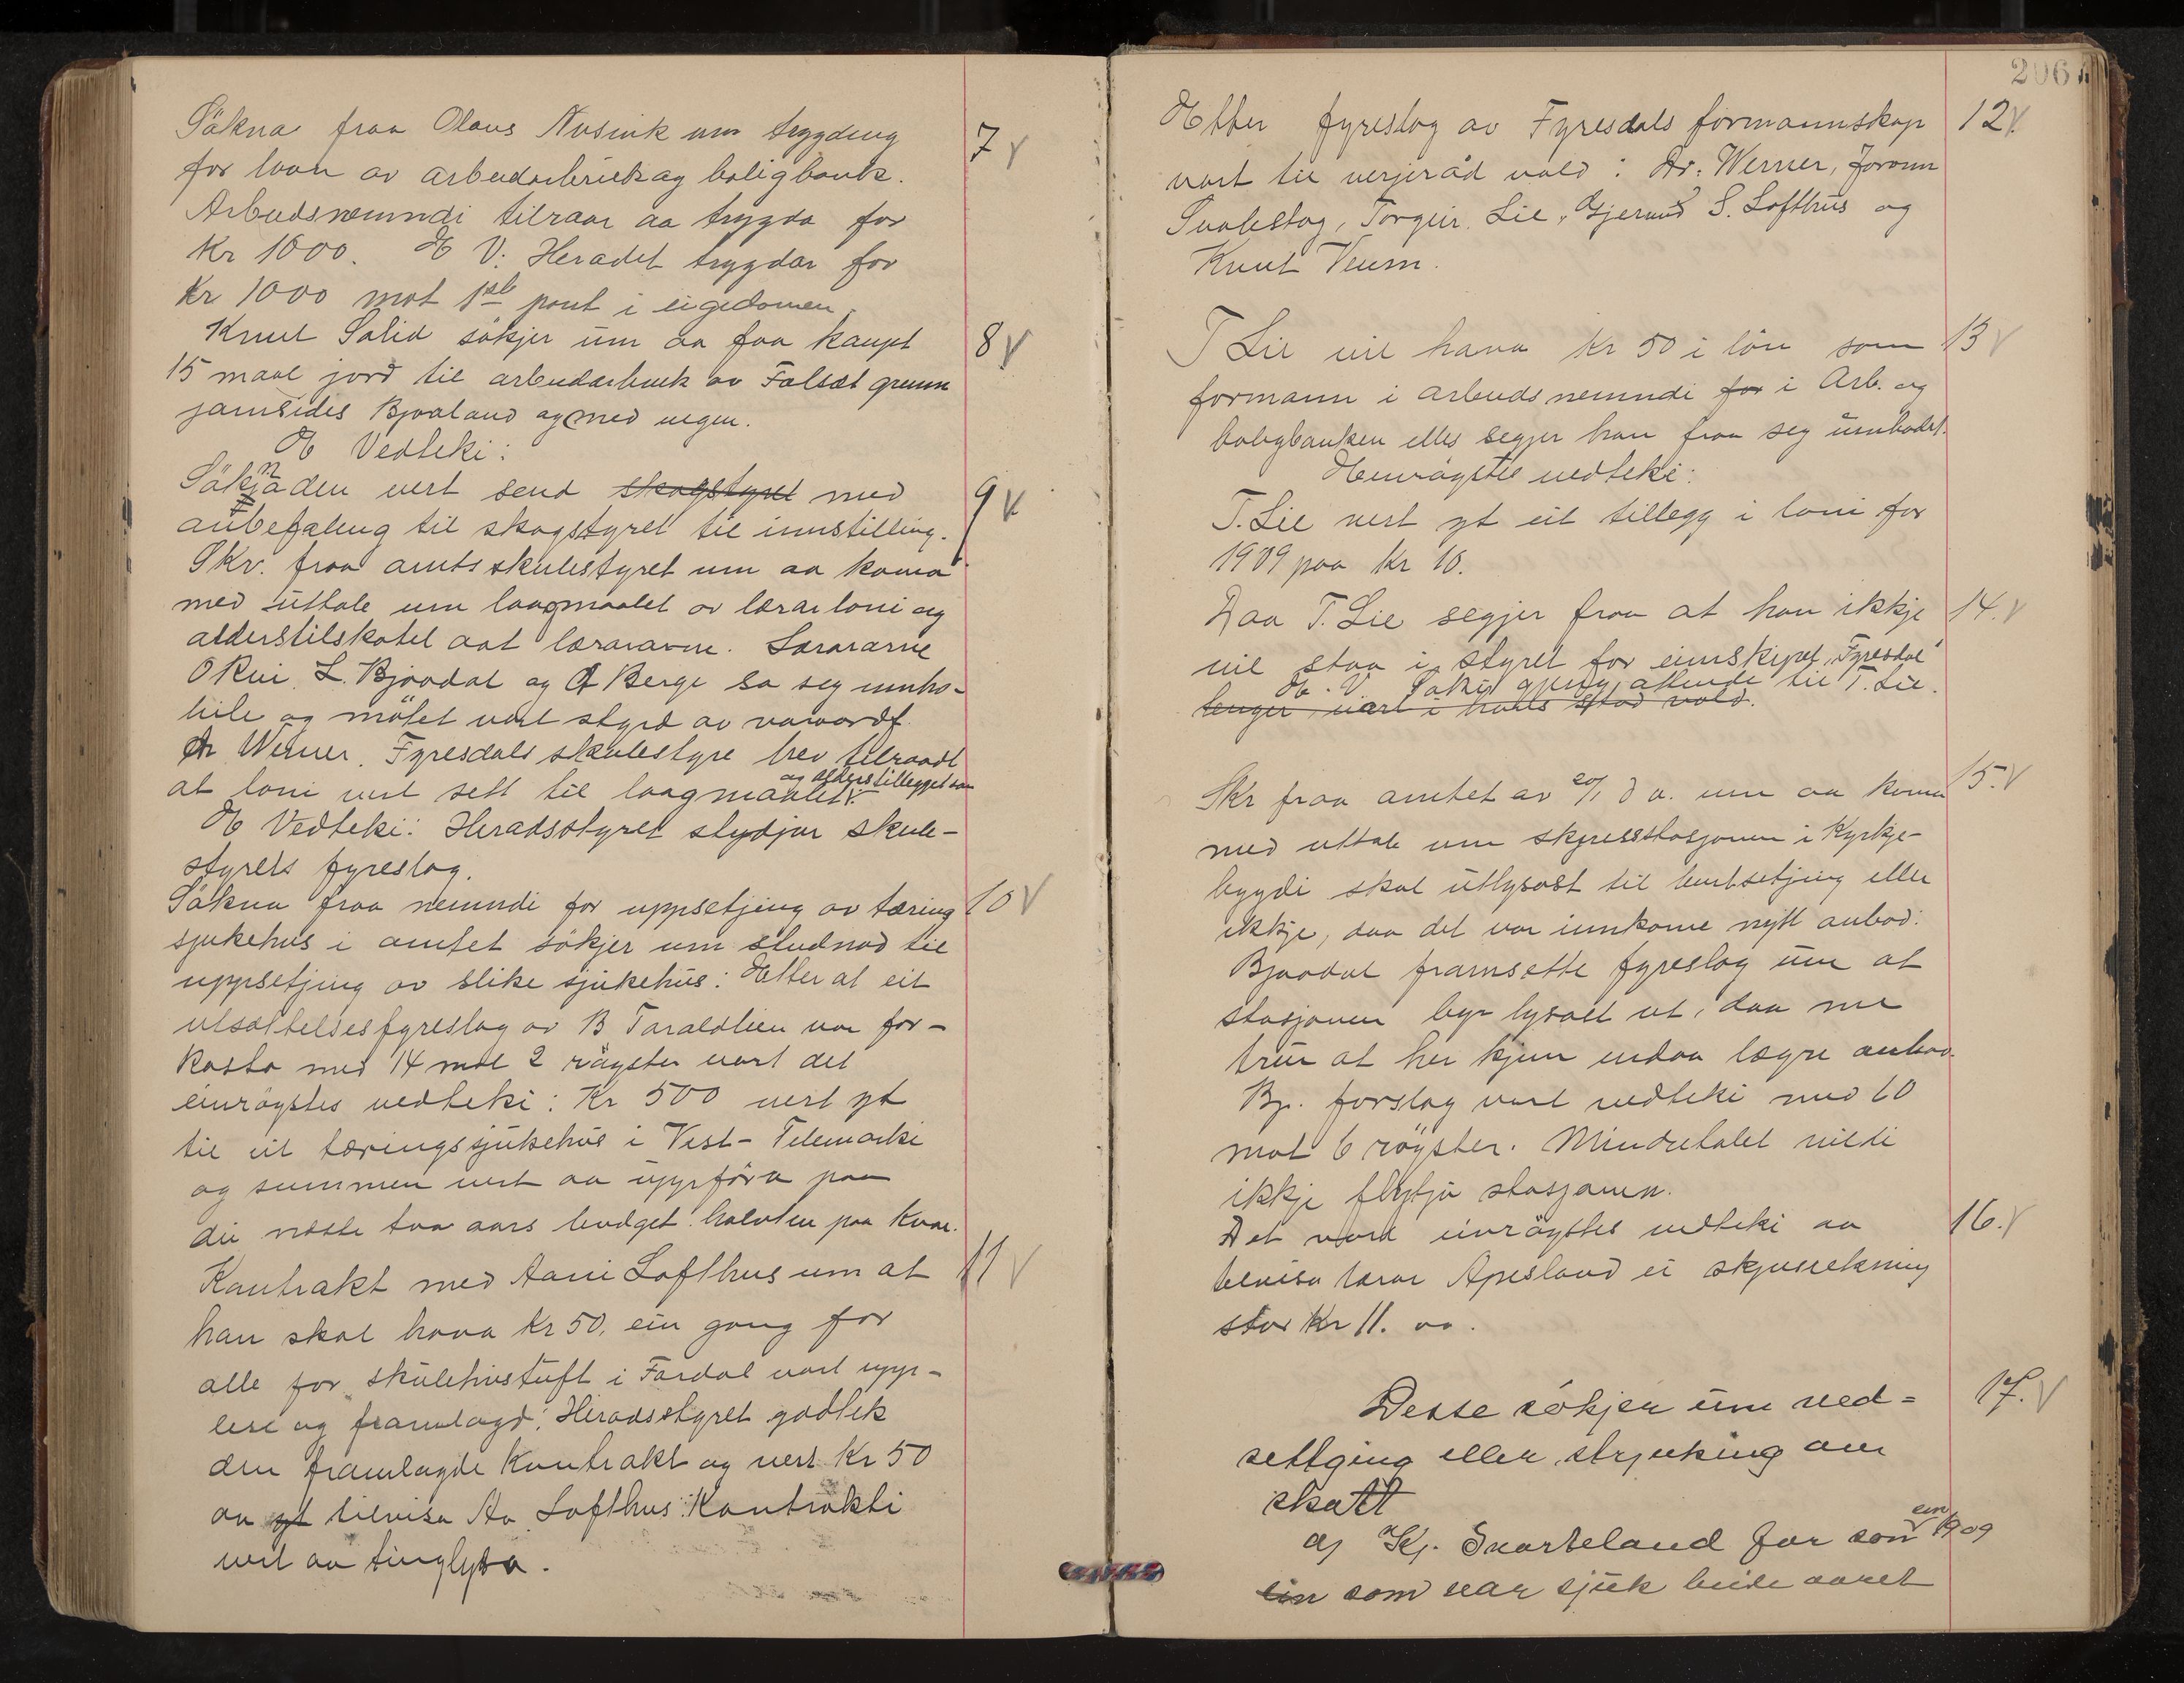 Søkna fraa Olaus Nusink um trygding
for laan av arbeidarbruk og boligbank.
Arbeidsnemndi tilraar aa trygda for
Kr 1000. E V: Heradet trygdar for
Kr 1000 mot 1ste pant i eigedomen.
7
Knut Solid søkjer um aa faa kaupt
15 maal jord til arbeidarbruk av Folsæt grunn
jamsides Bjaaland og med vegen.
E Vedteki:
8
Søknaden vert send skogstyret med
anbefaling til skogstyret til innstilling.
9
Skr. fraa amtsskulestyret um aa koma
med uttale um laagmaalet av lærarloni og
alderstilskotet aat lærararne. Lærararne
O Kvi, L. Bjaadal og O Berge sa seg innha-
bile og møtet vart styrd av varaordf.
Dr Werner. Fyresdals skulestyre hev tilraadt
at loni vert sett til laagmaalet og alderstillegget
E Vedteki: Heradsstyret stydjar skule-
styrets fyreslag.
Søkna fraa nemndi for uppsetjing av tæring
sjukehus i amtet søkjer um studnad til
uppsetjing av slike sjukehus: Etter at eit
utsættelsesfyreslag av B Taraldlien var for-
kasta med 14 mot 2 røyster vart det
einrøystes vedteki: Kr 500 vert yt
til eit tæringssjukehus i Vest-Telemarki
og summen vert aa uppføra paa
dei næste tvo aars budget halvten paa kvar.
10
Kontrakt med Aani Lofthus um at
han skal hava Kr 50, ein gong for
alle for skulehustuft i Fardal vart upp-
lesi og framlagd: Heradsstyret godtek
den framlagde Kontrakt og vert Kr 50
aa yt tilvisa Aa Lofthus: Kontrakti
vert aa tinglysa.
11
206
Etter fyreslag av Fyresdals formannskap
vart til verjeråd vald: Dr. Werner, Jorunn
Svalestog, Torgeir Lie, Gjermund S. Lofthus og
Knut Veum.
12
T Lie vil hava Kr 50 i løn som
formann i arbeidsnemndi for i Arb. og
boligbanken elles segjer han fraa seg umbodet.
Einrøystes vedteki:
T. Lie vert yt eit tillegg i loni for
1909 paa Kr 10.
13
Daa T. Lie segjer fraa at han ikkje
vil staa i styret for eimskipet "Fyresdal"
E. V. Saki gjeng attende til T. Lie.
lenger, vart i hans stad vald.
14.
Skr fraa amtet av 20/1 d a. um aa koma
med uttale um skysstasjonen i Kyrkje-
bygdi skal utlysast til burtsetjing eller
ikkje, daa det var innkome nytt anbod:
Bjaadal framsette fyreslag um at
stasjonen byr lysast ut, daa me
trur at her kjem endaa lægre anbod
Bj. forslag vart vedteki med 10
mot 6 røyster. Mindretalet vilde
ikkje flytja stasjonen.
15.
Det vard einrøystes vedteki aa
tilvisa lærar Apesland ei skyssrekning
stor Kr 11. 00.
16.
Desse søkjer um ned=
settjing eller strjuking au
skatt
a) Kj. Svarteland for son ein 1909
ein som var sjuk heile aaret
17.